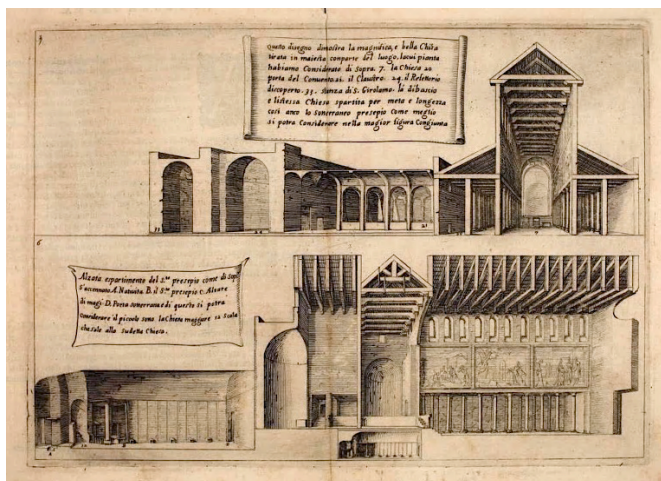 5
questo disegno dimostra la magnifica, e bella Chiesa
tirata in maiesta con parte del luogo, la cui pianta
habiamo Considerato di Sopra. 7. la Chiesa 20
porta del Convento. 21. il Claustro. 24. il Refettorio
discoperto. 33. stanza di S. Girolamo. là dibascio
e listessa Chiesa spartita per meta e longezza
cosi anco lo sonterraneo presepio Come meglio
si potra Considerare nella magior figura Congionta
33
21
6
Alzata espartimento del S.mo presepio come di sopra
A. Natività. B. il S.mo presepio C. Altare
di magi. D. Porta sonterranea e di questo si potra
Considerare il piccolo sono la Chiesa maggiore 12 Scala
che sale alla sudetta Chiesa.